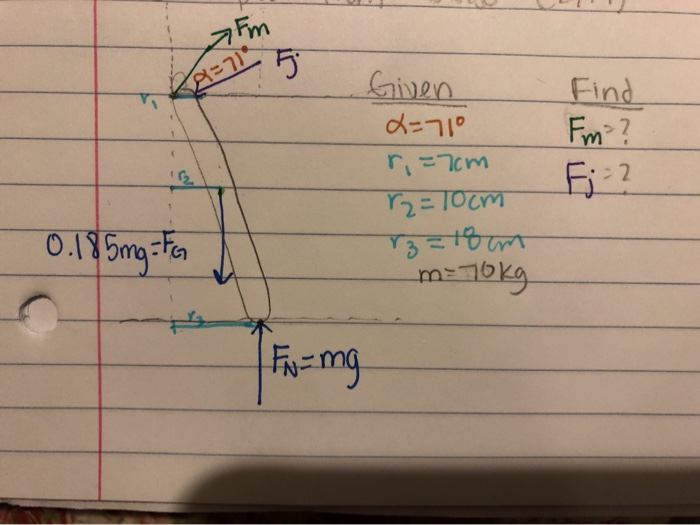 Fm
α=71°
Fj
r₁
r₂
0.185mg=FG
r₃
FN=mg
Given
α=71°
r₁=7cm
r₂=10cm
r₃=18cm
m=70kg
Find
Fm=?
Fj=?